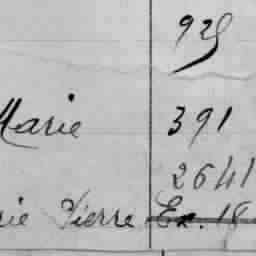 925
Marie 391
2641
rie Pierre Ex. 18